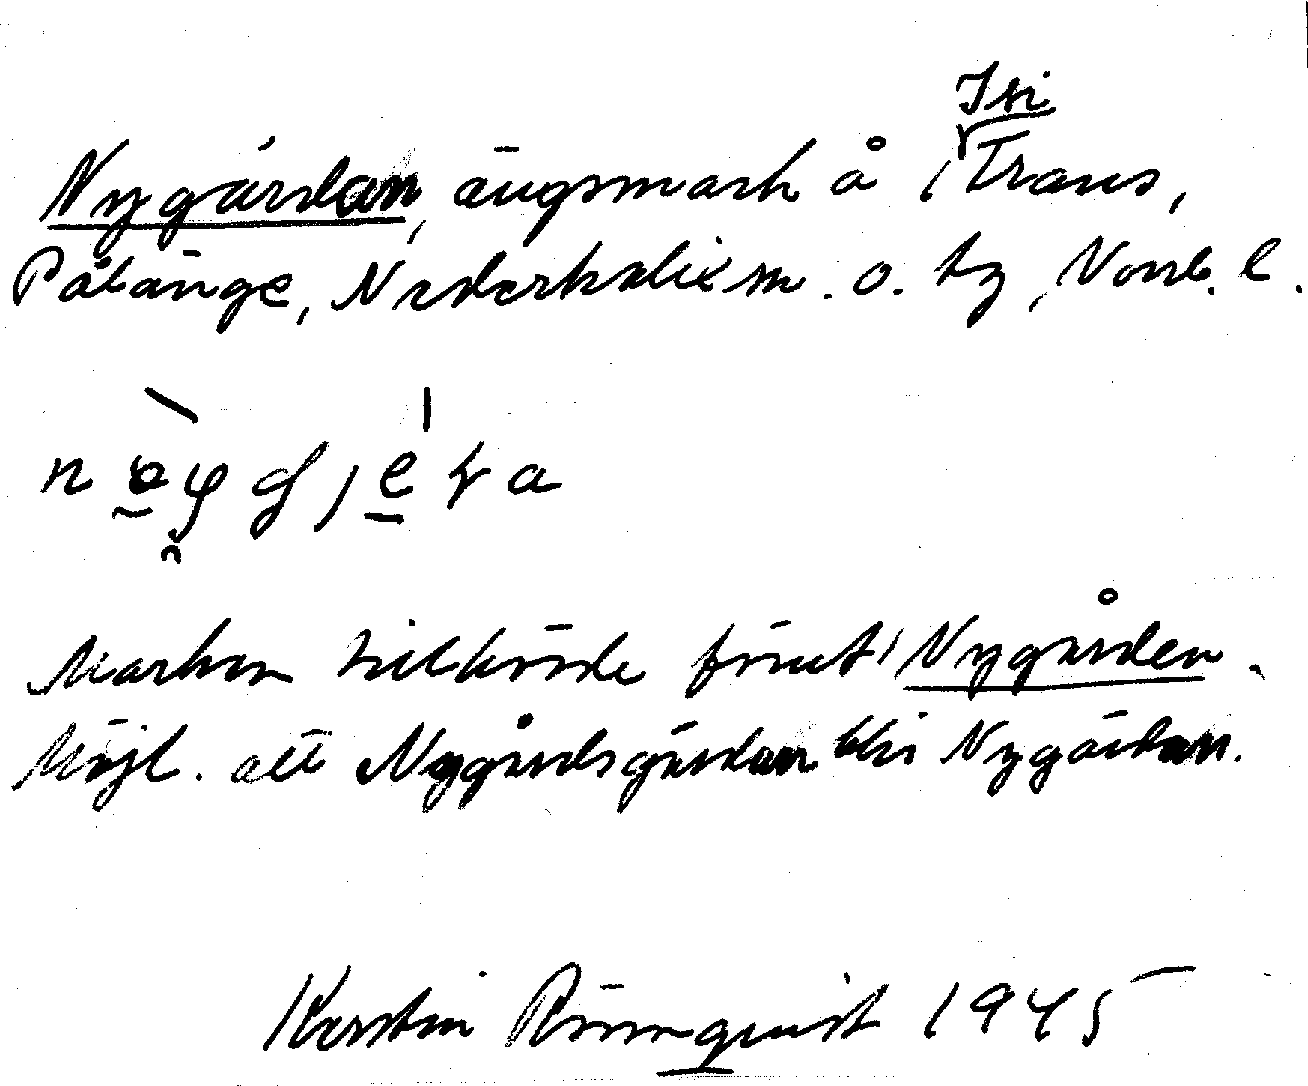 Isi
Nygärdan, ängsmark å Trans,
Pålänge, Nederkalix sn. o. tg, Norrb. l.
Marken tillhörde förut Nygården.
Möjl. att Nygårdsgärdan blir Nygärdan.
Kerstin Rönnquist 1945